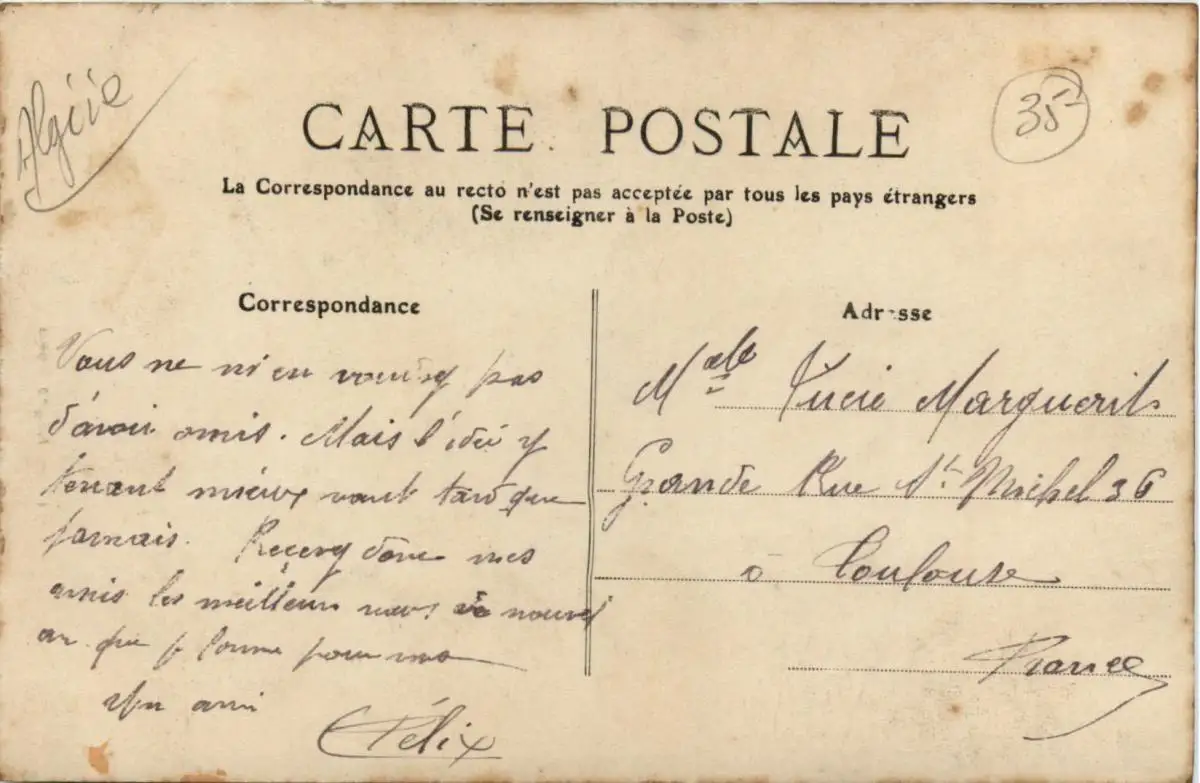 Algérie
35-
CARTE POSTALE
La Correspondance au recto n'est pas acceptée par tous les pays étrangers
(Se renseigner à la Poste)
Correspondance
Vous ne m'en voudrez pas
d'avoir omis. Mais l'idée y
tenant mieux vaut tard que
jamais. Recevez donc mes
amis les meilleurs vœux de nouvel
an que je forme pour vous
Un ami
Félix
Adresse
Mlle Lucie Marguerite
Grande Rue St Michel 36
à Toulouse
France